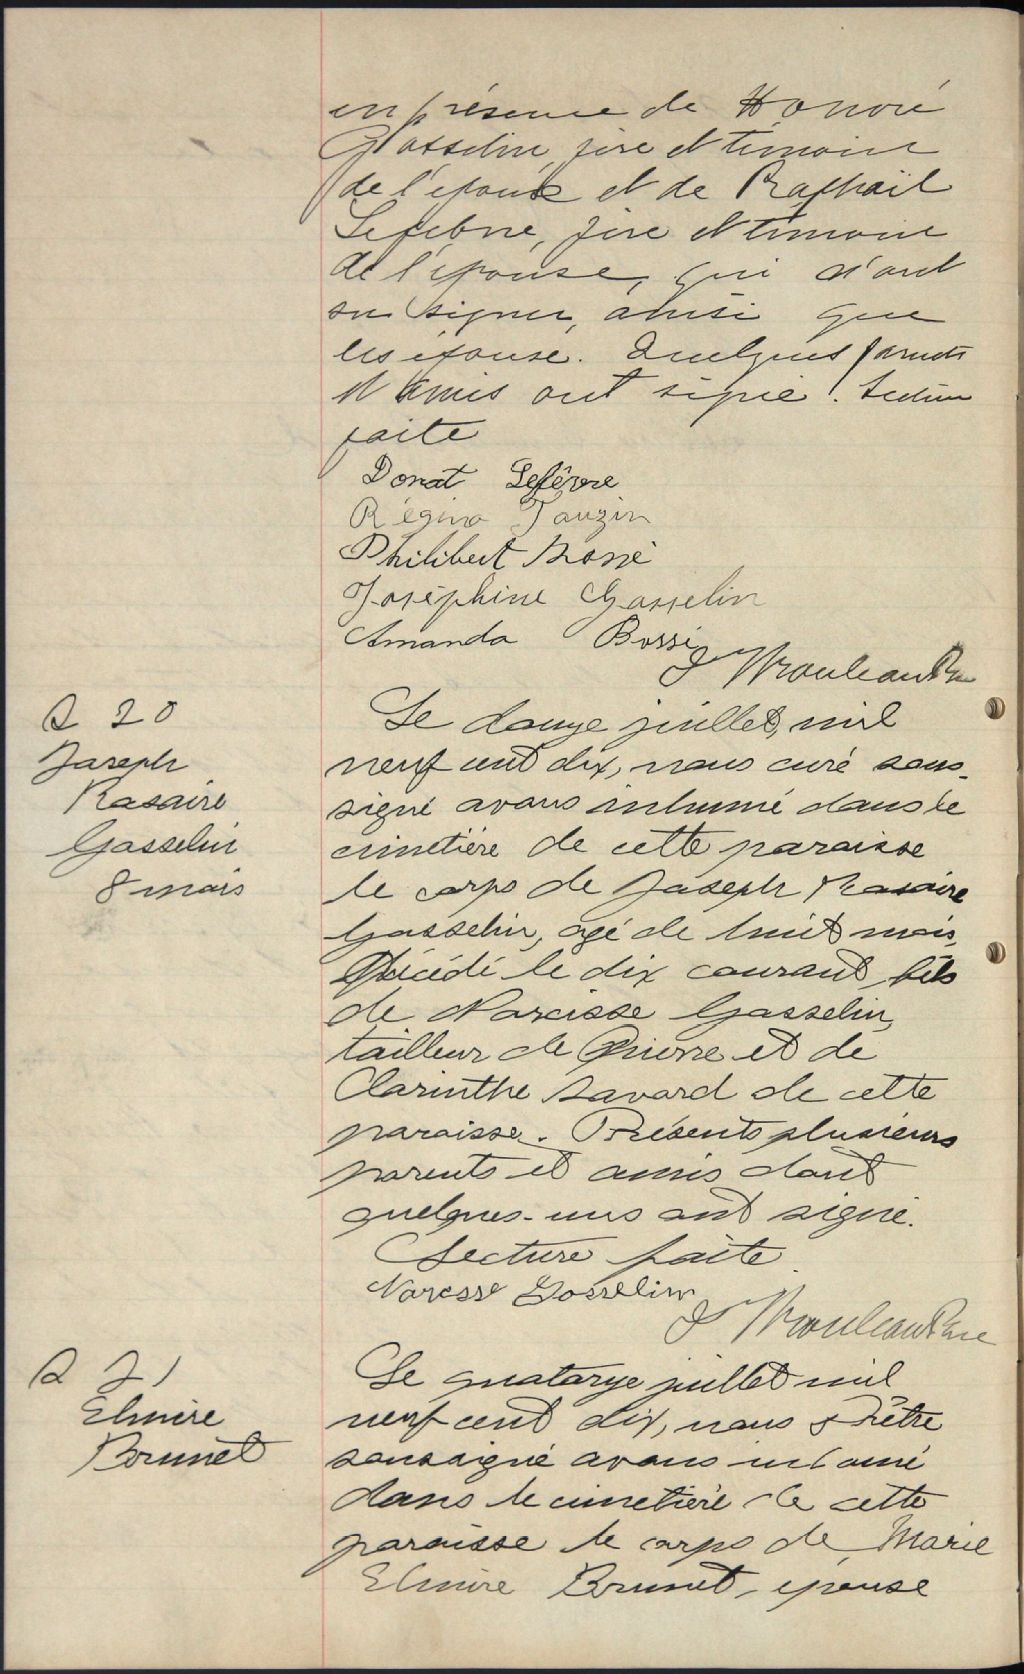 en présence de Honoré
Gosselin, père et témoin
de l'époux et de Raphaël
Lefebvre, père et témoin
de l'épouse, qui n'ont
su signer, ainsi que
les épousé. Quelques parents
et amis ont signé. Lecture
faite
Donat Lefèvre
Régina Tauzin
Philibert Bossé
Joséphine Gosselin
Amanda Bossé
J Rouleau Ptre
S 20
Joseph
Rosaire
Gosselin
8 mois
Le douze juillet, mil
neuf cent dix, nous curé sous-
signé avons inhumé dans le
cimetière de cette paroisse
le corps de Joseph Rosaire
Gosselin, agé de huit mois,
décédé le dix courant, fils
de Narcisse Gosselin,
tailleur de Pierre et de
Clarinthe Savard de cette
paroisse. Présents plusieurs
parents et amis dont
quelques-uns ont signé.
Lecture faite.
Narcsse Gosselin
J Rouleau Ptre
S 21
Elmire
Brunet
Le quatorze juillet mil
neuf cent dix, nous Prêtre
soussigné avons inhumé
dans le cimetière de cette
paroisse le corps de Marie
Elmire Brunet, épouse